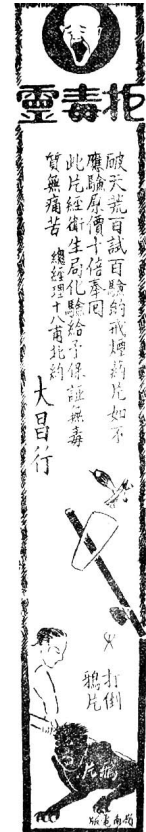 拒毒靈
破天荒百試百驗的戒煙葯片如不
應驗原價十倍奉回
此片經衛生局化驗給予保証無毒
質無痛苦 總經理十八甫北約
大昌行
打倒
鴉片
鴉片